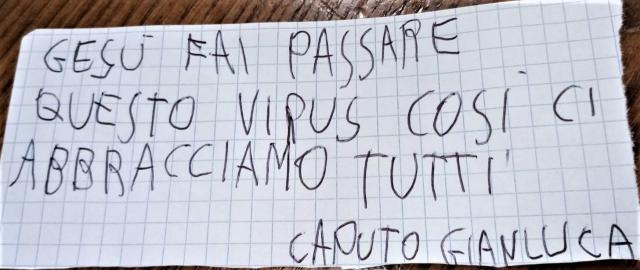 GESÙ FAI PASSARE
QUESTO VIRUS COSÍ CI
ABBRACCIAMO TUTTI
CAPUTO GIANLUCA